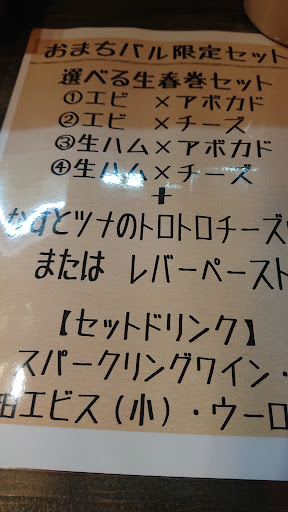 おまちバル限定セット
選べる生春巻セット
①エビ ×アボカド
②エビ ×チーズ
③生ハム×アボカド
④生ハム×チーズ
+
なすとツナのトロトロチーズ
または レバーペースト
【セットドリンク】
スパークリングワイン・
エビス(小)・ウーロ